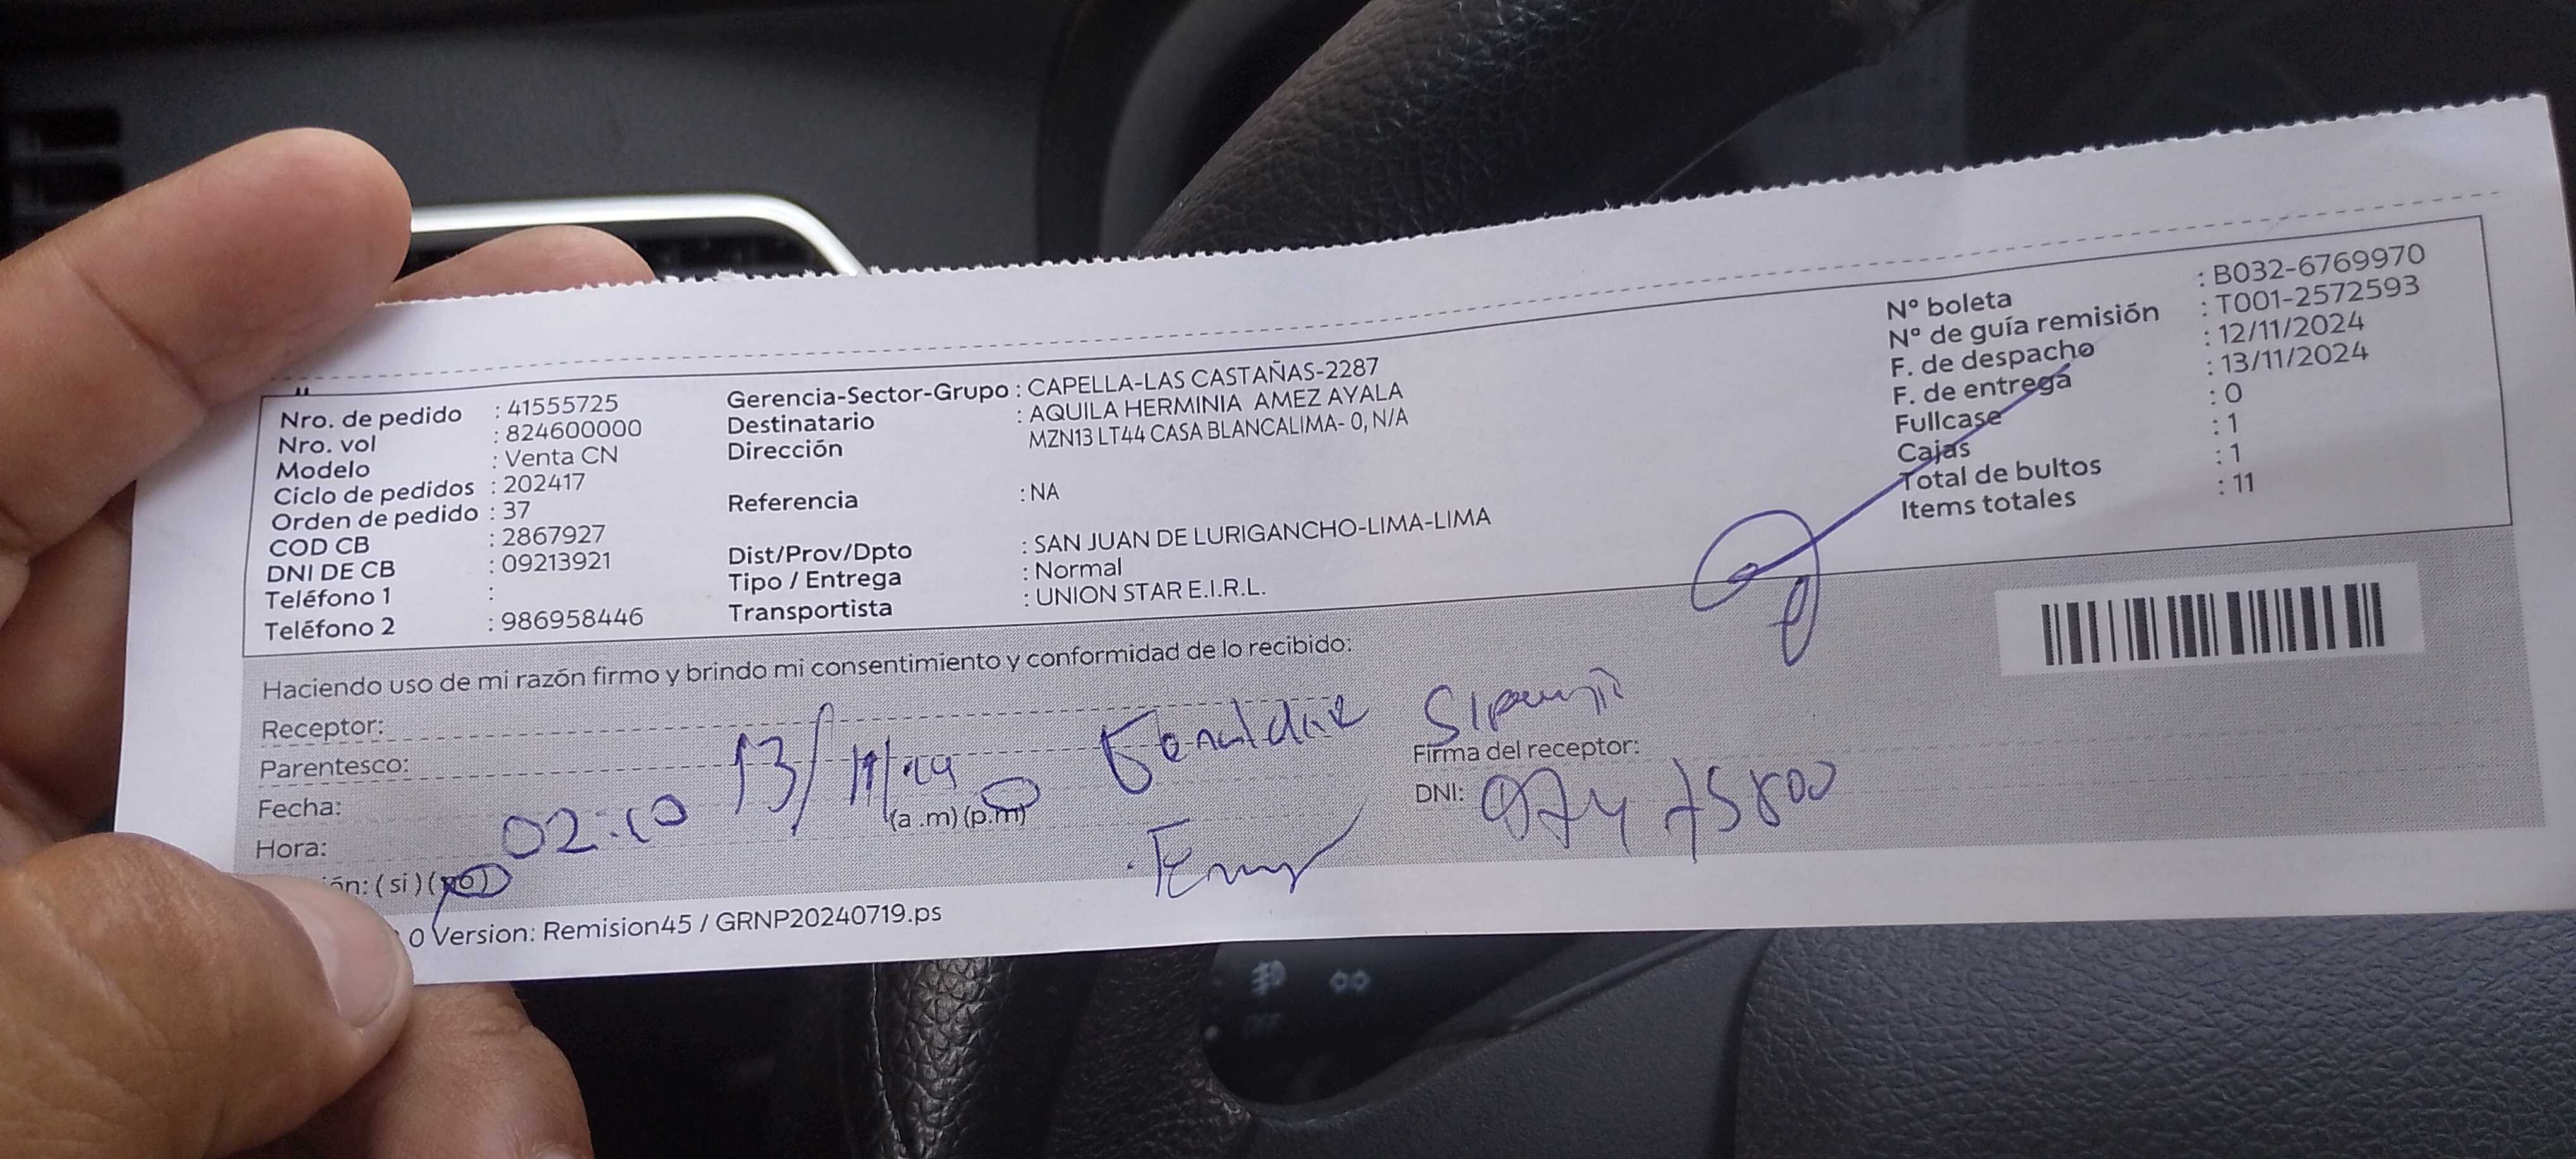 Nro. de pedido : 41555725
Nro. vol : 824600000
Modelo : Venta CN
Ciclo de pedidos : 202417
Orden de pedido : 37
COD CB : 2867927
DNI DE CB : 09213921
Teléfono 1 :
Teléfono 2 : 986958446
Gerencia-Sector-Grupo : CAPELLA-LAS CASTAÑAS-2287
Destinatario : AQUILA HERMINIA AMEZ AYALA
Dirección MZN13 LT44 CASA BLANCALIMA- 0, N/A
Referencia : NA
Dist/Prov/Dpto : SAN JUAN DE LURIGANCHO-LIMA-LIMA
Tipo / Entrega : Normal
Transportista : UNION STAR E.I.R.L.
N° boleta : B032-6769970
N° de guía remisión : T001-2572593
F. de despacho : 12/11/2024
F. de entrega : 13/11/2024
Fullcase : 0
Cajas : 1
Total de bultos : 1
Items totales : 11
Haciendo uso de mi razón firmo y brindo mi consentimiento y conformidad de lo recibido:
Receptor:
Parentesco:
Fecha: 13/11/24
Hora: 02:10 (a .m) (p.m)
ón: ( si ) ( no )
Firma del receptor:
DNI:
0 Version: Remision45 / GRNP20240719.ps